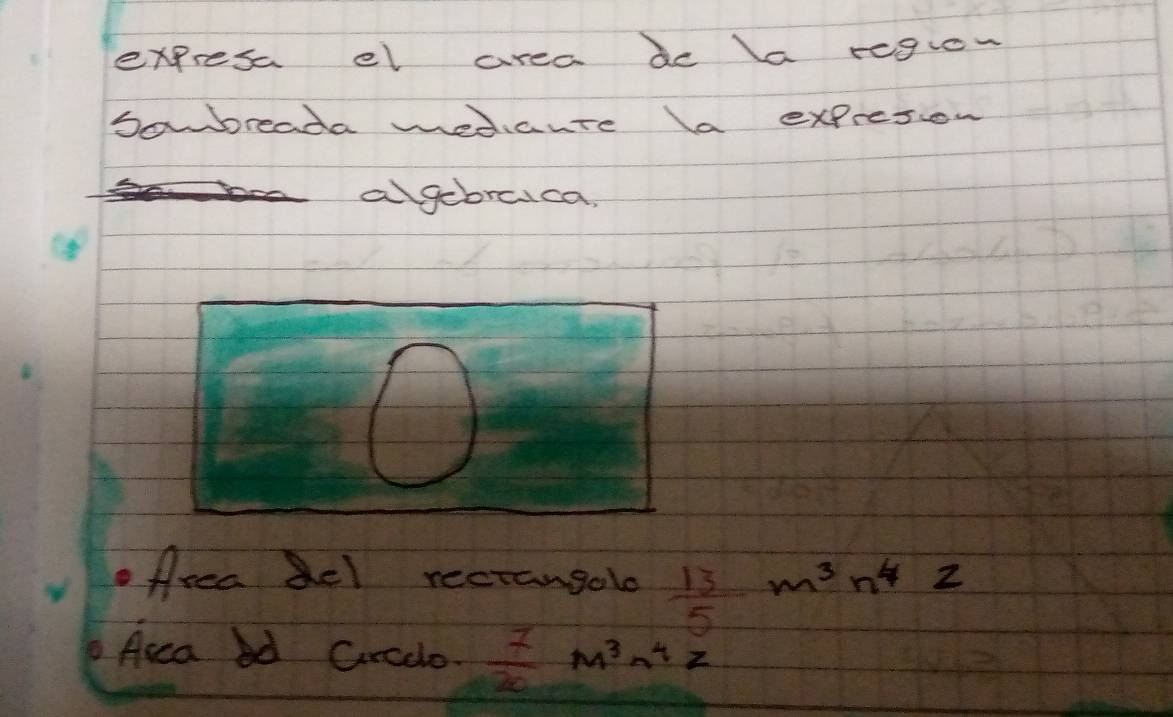 expresa el area de la region
Sombreada mediante la expresion
algebraica.
• Area del rectangolo 13/5 m³ n⁴ z
• Area del Circulo. 7/20 m³ n⁴ z